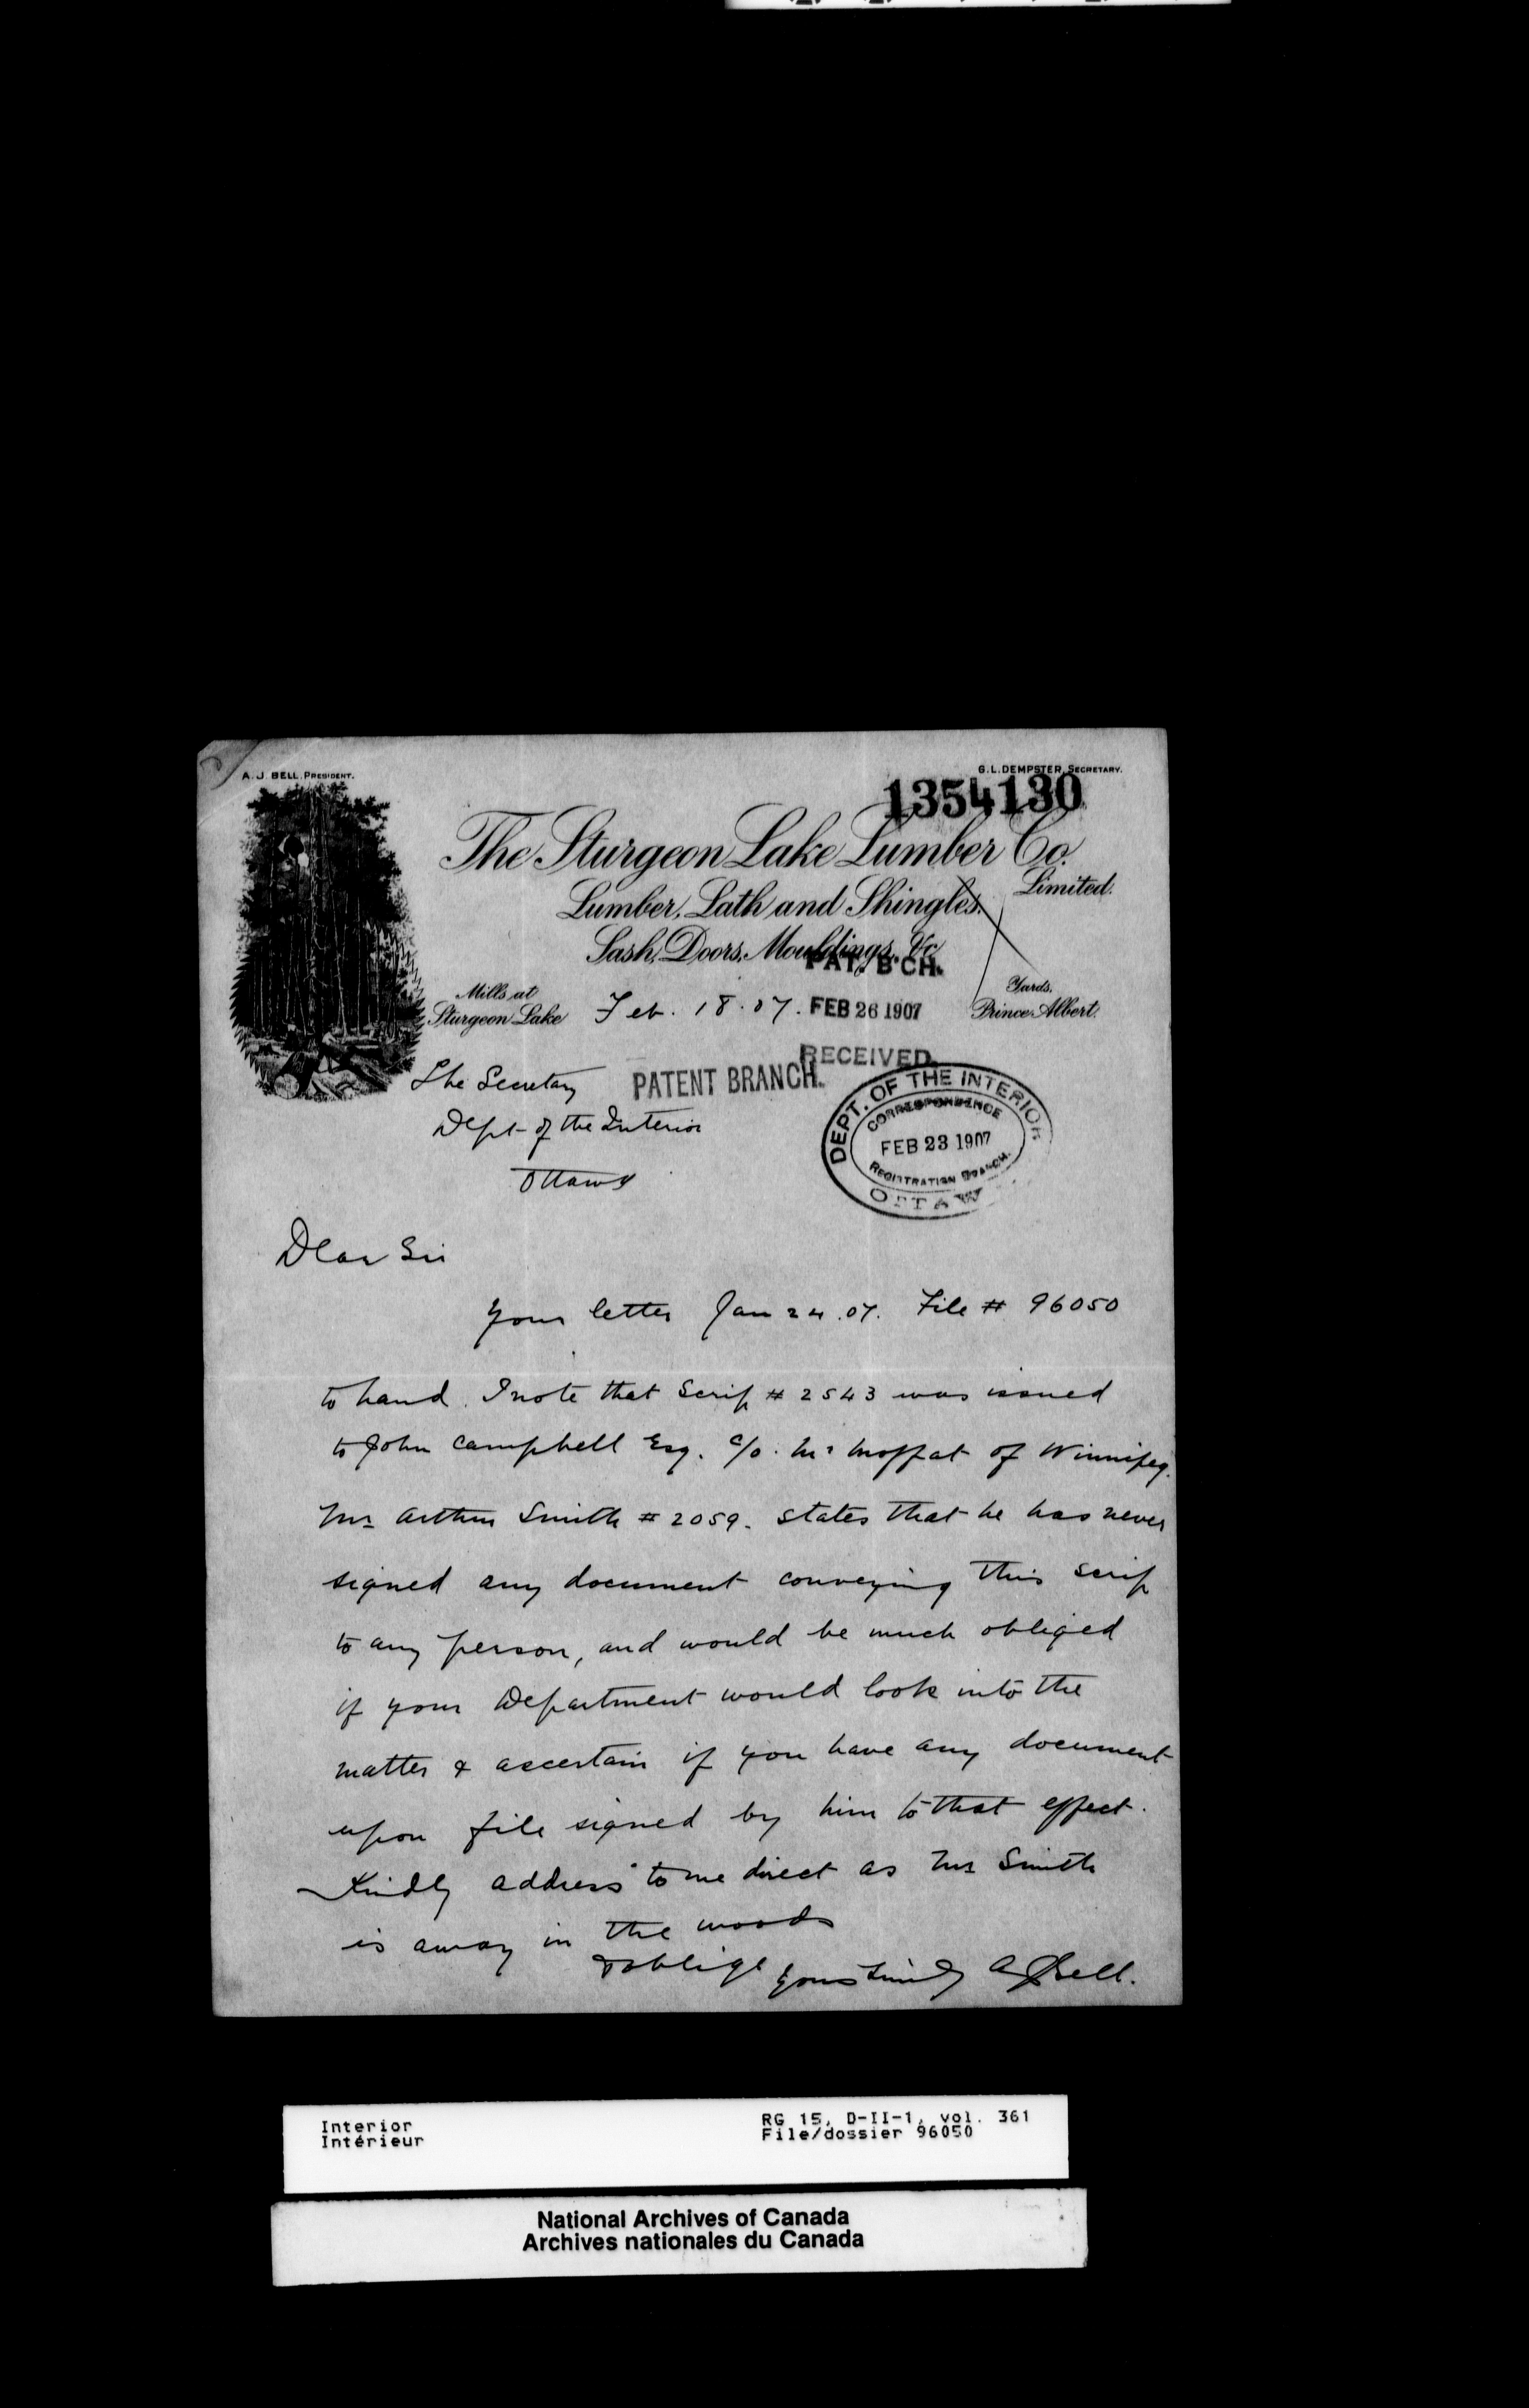 A. J. BELL, PRESIDENT.
G. L. DEMPSTER, SECRETARY.
1354130
The Sturgeon Lake Lumber Co.
Limited.
Lumber, Lath and Shingles.
Sash, Doors, Mouldings, &c
PAT. B'CH.
Mills at
Sturgeon Lake
Feb. 18.07.
FEB 26 1907
Yards.
Prince Albert.
RECEIVED.
PATENT BRANCH.
DEPT. OF THE INTERIOR
CORRESPONDENCE
FEB 23 1907
REGISTRATION BRANCH.
OTTAW
The Secretary
Dept of the Interior
Ottawa
Dear Sir
Your letter Jan 24.07. File # 96050
to hand. I note that Scrip # 2543 was issued
to John Campbell Esq. c/o. Mr Moffat of Winnipeg.
Mr Arthur Smith # 2059. states that he has never
signed any document conveying this scrip
to any person, and would be much obliged
if your Department would look into the
matter & ascertain if you have any document
upon file signed by him to that effect.
Kindly address to me direct as Mr Smith
is away in the woods
& oblige Yours truly A J Bell.
Interior
Intérieur
RG 15, D-II-1, vol. 361
File/dossier 96050
National Archives of Canada
Archives nationales du Canada